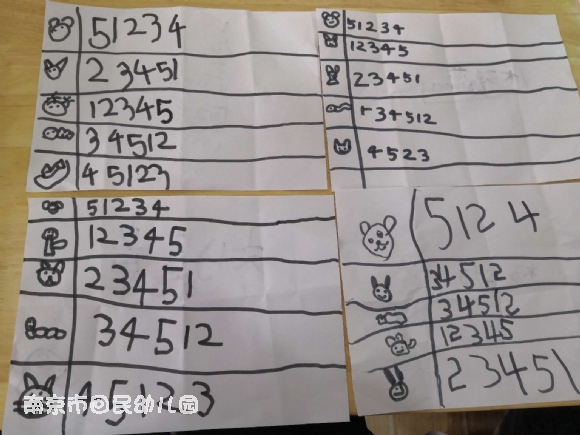 51234
23451
12345
34512
45123
51234
12345
23451
34512
4523
51234
12345
23451
34512
45123
512 4
34512
34512
12345
23451
南京市回民幼儿园